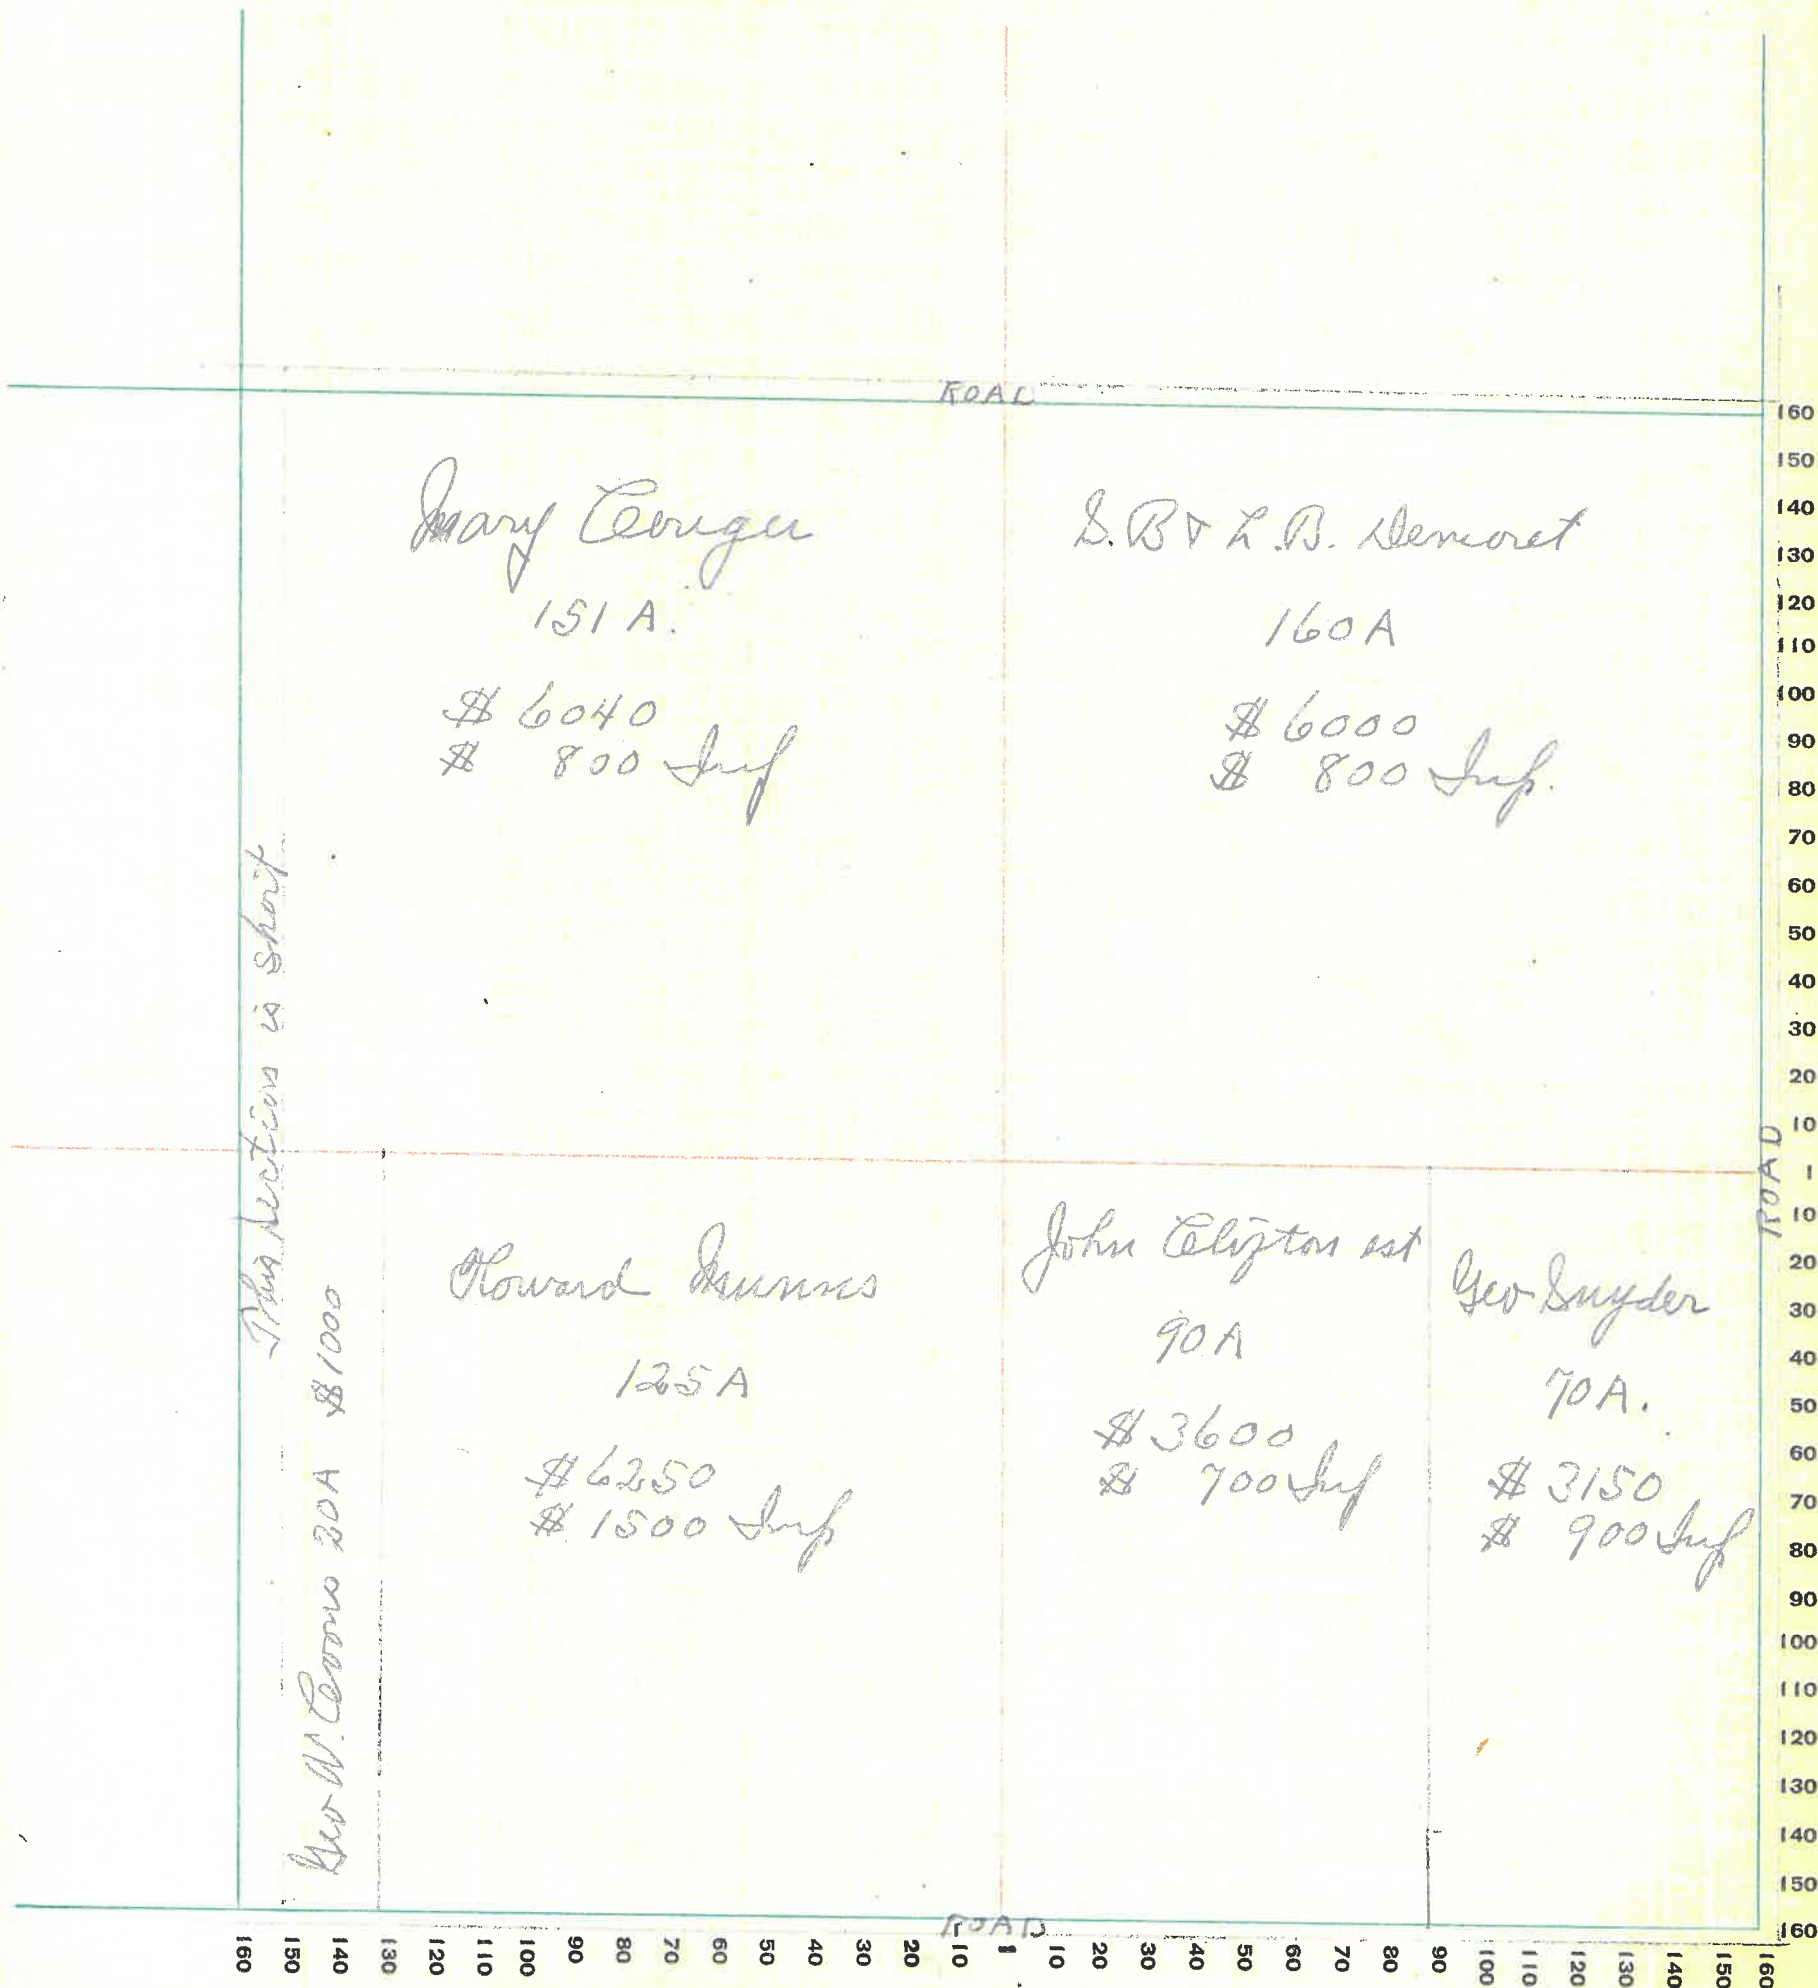 ROAD
Mary Conger
151 A.
$ 6040
$ 800 Imp
S. B & L. B. Demoret
160 A
$ 6000
$ 800 Imp.
This section is short
Geo W. Coons 20A $1000
Howard Munns
125 A
$ 6250
$ 1500 Imp
John Clizton est
90 A
$ 3600
$ 700 Imp
Geo Snyder
70 A.
$ 3150
$ 900 Imp
ROAD
ROAD
160
150
140
130
120
110
100
90
80
70
60
50
40
30
20
10
1
10
20
30
40
50
60
70
80
90
100
110
120
130
140
150
160
160 150 140 130 120 110 100 90 80 70 60 50 40 30 20 10 1 10 20 30 40 50 60 70 80 90 100 110 120 130 140 150 160